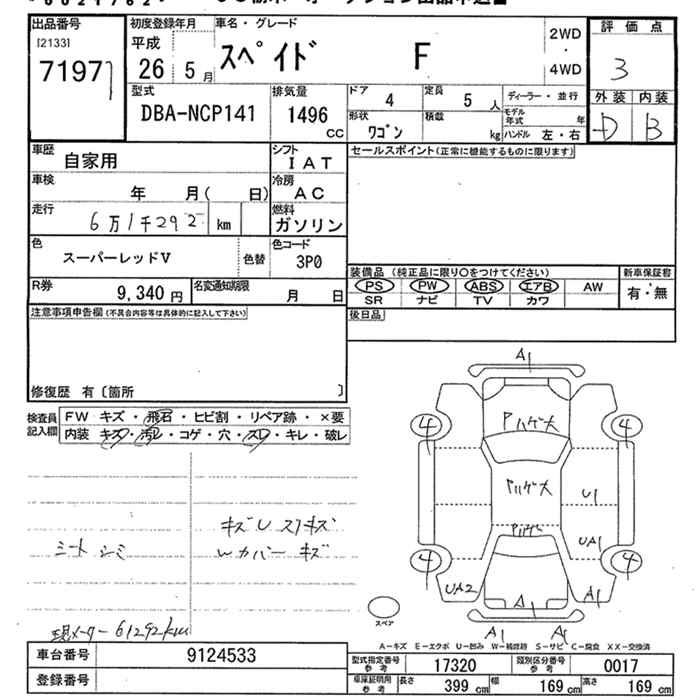 出品番号
[2133]
7197
初度登録年月
平成
26 5月
車名・グレード
スペイド F
2WD
・
4WD
評価点
3
外装 内装
D B
型式
DBA-NCP141
排気量
1496
CC
ドア
4
定員
5 人
形状
ワゴン
積載
kg
ディーラー・並行
モデル
年式 年
ハンドル 左・右
車歴
自家用
シフト
IAT
車検
年 月( 日)
冷房
AC
走行
6万1千292 km
燃料
ガソリン
色
スーパーレッドV
色替
色コード
3P0
R券
9,340 円
名変通知期限
月 日
セールスポイント(正常に機能するものに限ります)
装備品(純正品に限り○をつけてください)
新車保証書
PS PW ABS エアB AW
有・無
SR ナビ TV カワ
後日品
注意事項申告欄(不具合内容等は具体的に記入して下さい)
修復歴 有〔箇所 〕
検査員
記入欄
FW キズ・飛石・ヒビ割・リペア跡・×要
内装 キズ・汚レ・コゲ・穴・スレ・キレ・破レ
シートシミ
キズU スリキズ
Wカバーキズ
現メーター61292km
A1
Pハゲ大
4 4
Pハゲ大
U1
Pハゲ
UA1
4 4
UA2
A1
A1
スペア
A1 A1
A－キズ E－エクボ U－凹み W－補修跡 S－サビ C－腐食 XX－交換済
車台番号
9124533
登録番号
型式指定番号
参考
17320
類別区分番号
参考
0017
車庫証明用
参考
長さ
399 cm
幅
169 cm
高さ
169 cm